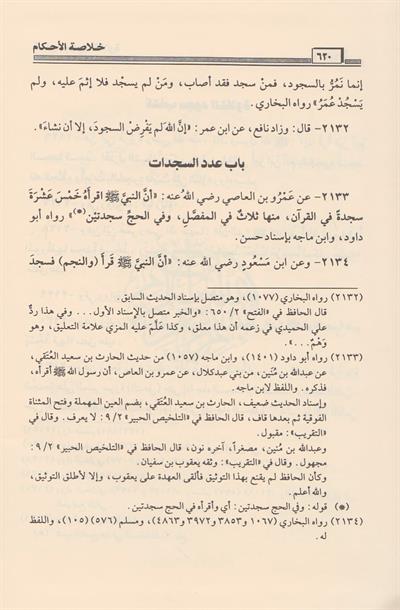 ٦٢٠ خلاصة الأحكام
إنما نَمُرُّ بالسجود، فمنْ سجد فقد أصاب، ومَنْ لم يسجُد فلا إثمَ عليه، ولم
يَسْجُدْ عُمَرُ» رواه البخاري.
٢١٣٢- قال: وزاد نافع، عن ابن عمر: «إنَّ اللهَ لم يَفْرِضْ السجودَ، إلا أن نشاءَ».
باب عدد السجدات
٢١٣٣- عن عَمْرُو بن العاصي رضي الله عنه: «أنَّ النبيَّ ﷺ اقرأهُ خَمْسَ عَشْرَةَ
سجدةً في القرآن، منها ثلاثٌ في المفصَّلِ، وفي الحجِّ سجدتيْن(*)» رواه أبو
داود، وابن ماجه بإسناد حسن.
٢١٣٤- وعن ابن مَسْعُودٍ رضي الله عنه: «أنَّ النبيَّ ﷺ قَرَأَ (والنجم) فسجدَ
(٢١٣٢) رواه البخاري (١٠٧٧)، وهو متصل بإسناد الحديث السابق.
قال الحافظ في «الفتح» ٢/ ٦٥٠: «والخبر متصل بالإسناد الأول... وفي هذا ردٌّ
علي الحميدي في زعمه أن هذا معلق، وكذا علَّم عليه المزي علامة التعليق، وهو
وَهْمٌ...».
(٢١٣٣) رواه أبو داود (١٤٠١)، وابن ماجه (١٠٥٧) من حديث الحارث بن سعيد العُتَقي،
عن عبدالله بن مُنَين، من بني عبدكلال، عن عمرو بن العاص، أن رسول الله ﷺ أقرأه،
فذكره. واللفظ لابن ماجه.
وإسناد الحديث ضعيف، الحارث بن سعيد العُتَقي، بضم العين المهملة وفتح المثناة
الفوقية ثم بعدها قاف، قال الحافظ في «التلخيص الحبير» ٢/ ٩: لا يعرف. وقال في
«التقريب»: مقبول.
وعبدالله بن مُنَين، مصغراً، آخره نون، قال الحافظ في «التلخيص الحبير» ٢/ ٩:
مجهول. وقال في «التقريب»: وثقه يعقوب بن سفيان.
وكأن الحافظ لم يقنع بهذا التوثيق فألقى العهدة على يعقوب، وإلا لأطلق التوثيق،
والله أعلم.
(*) قوله: وفي الحج سجدتين: أي وأقرأه في الحج سجدتين.
(٢١٣٤) رواه البخاري (١٠٦٧ و٣٨٥٣ و٣٩٧٢ و٤٨٦٣)، ومسلم (٥٧٦) (١٠٥)، واللفظ
له.